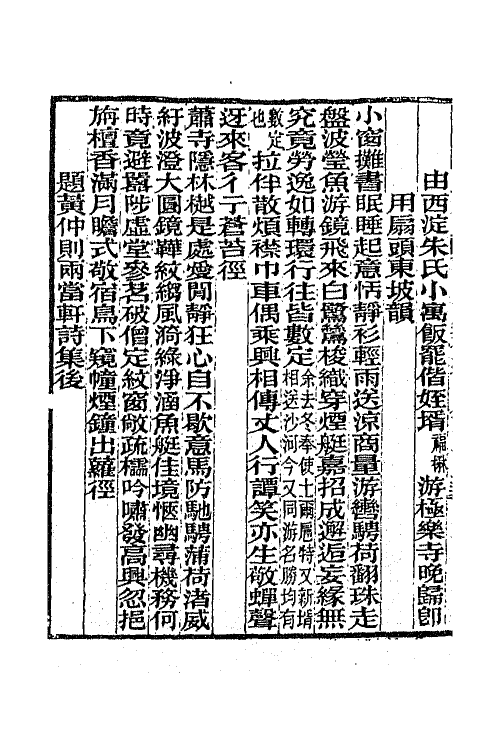 由西淀朱氏小寓飯罷偕姪壻游極樂寺晚歸卽
用扇頭東坡韻
小窗攤書眠睡起意恬靜衫輕雨送涼商量游轡騁荷翻珠走
盤波瑩魚游鏡飛來白鷺鷥梭織穿煙艇嘉招成邂逅妄緣無
究竟勞逸如轉環行往皆數定余去冬奉使土爾扈特又新壻相送沙河今又同游名勝均有
數定也拉伴散煩襟巾車偶乘興相傳丈人行譚笑亦生敬蟬聲
迓來客彳亍蒼苔徑
蕭寺隱林樾是處愛閒靜狂心自不歇意馬防馳騁蒲荷渚威
紆波澄大圓鏡鞾紋縐風漪綠淨涵魚艇佳境愜幽尋機務何
時竟避囂陟虛堂參茗破僧定紋窗敞疏櫺吟嘯發高興忽挹
旃檀香滿月瞻式敬宿鳥下窺幢煙鐘出蘿徑
題黃仲則兩當軒詩集後